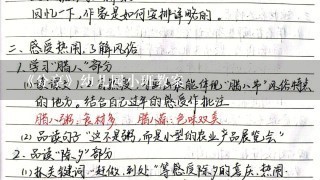 回忆一下,作家是如何安排详略的。
二、感受热闹,了解风俗
1. 学习“腊八”部分
能体现“腊八节”风俗特点
的地方。结合自己过年的感受作批注
腊八粥:食材多 腊八蒜:色味双美
(2) 品读句子“这不是粥,而是小型的农业产品展览会”
2. 品读“除夕”部分
(1) 抓关键词“赶做、到处”等感受除夕的喜庆、热闹
幼儿园小班教案